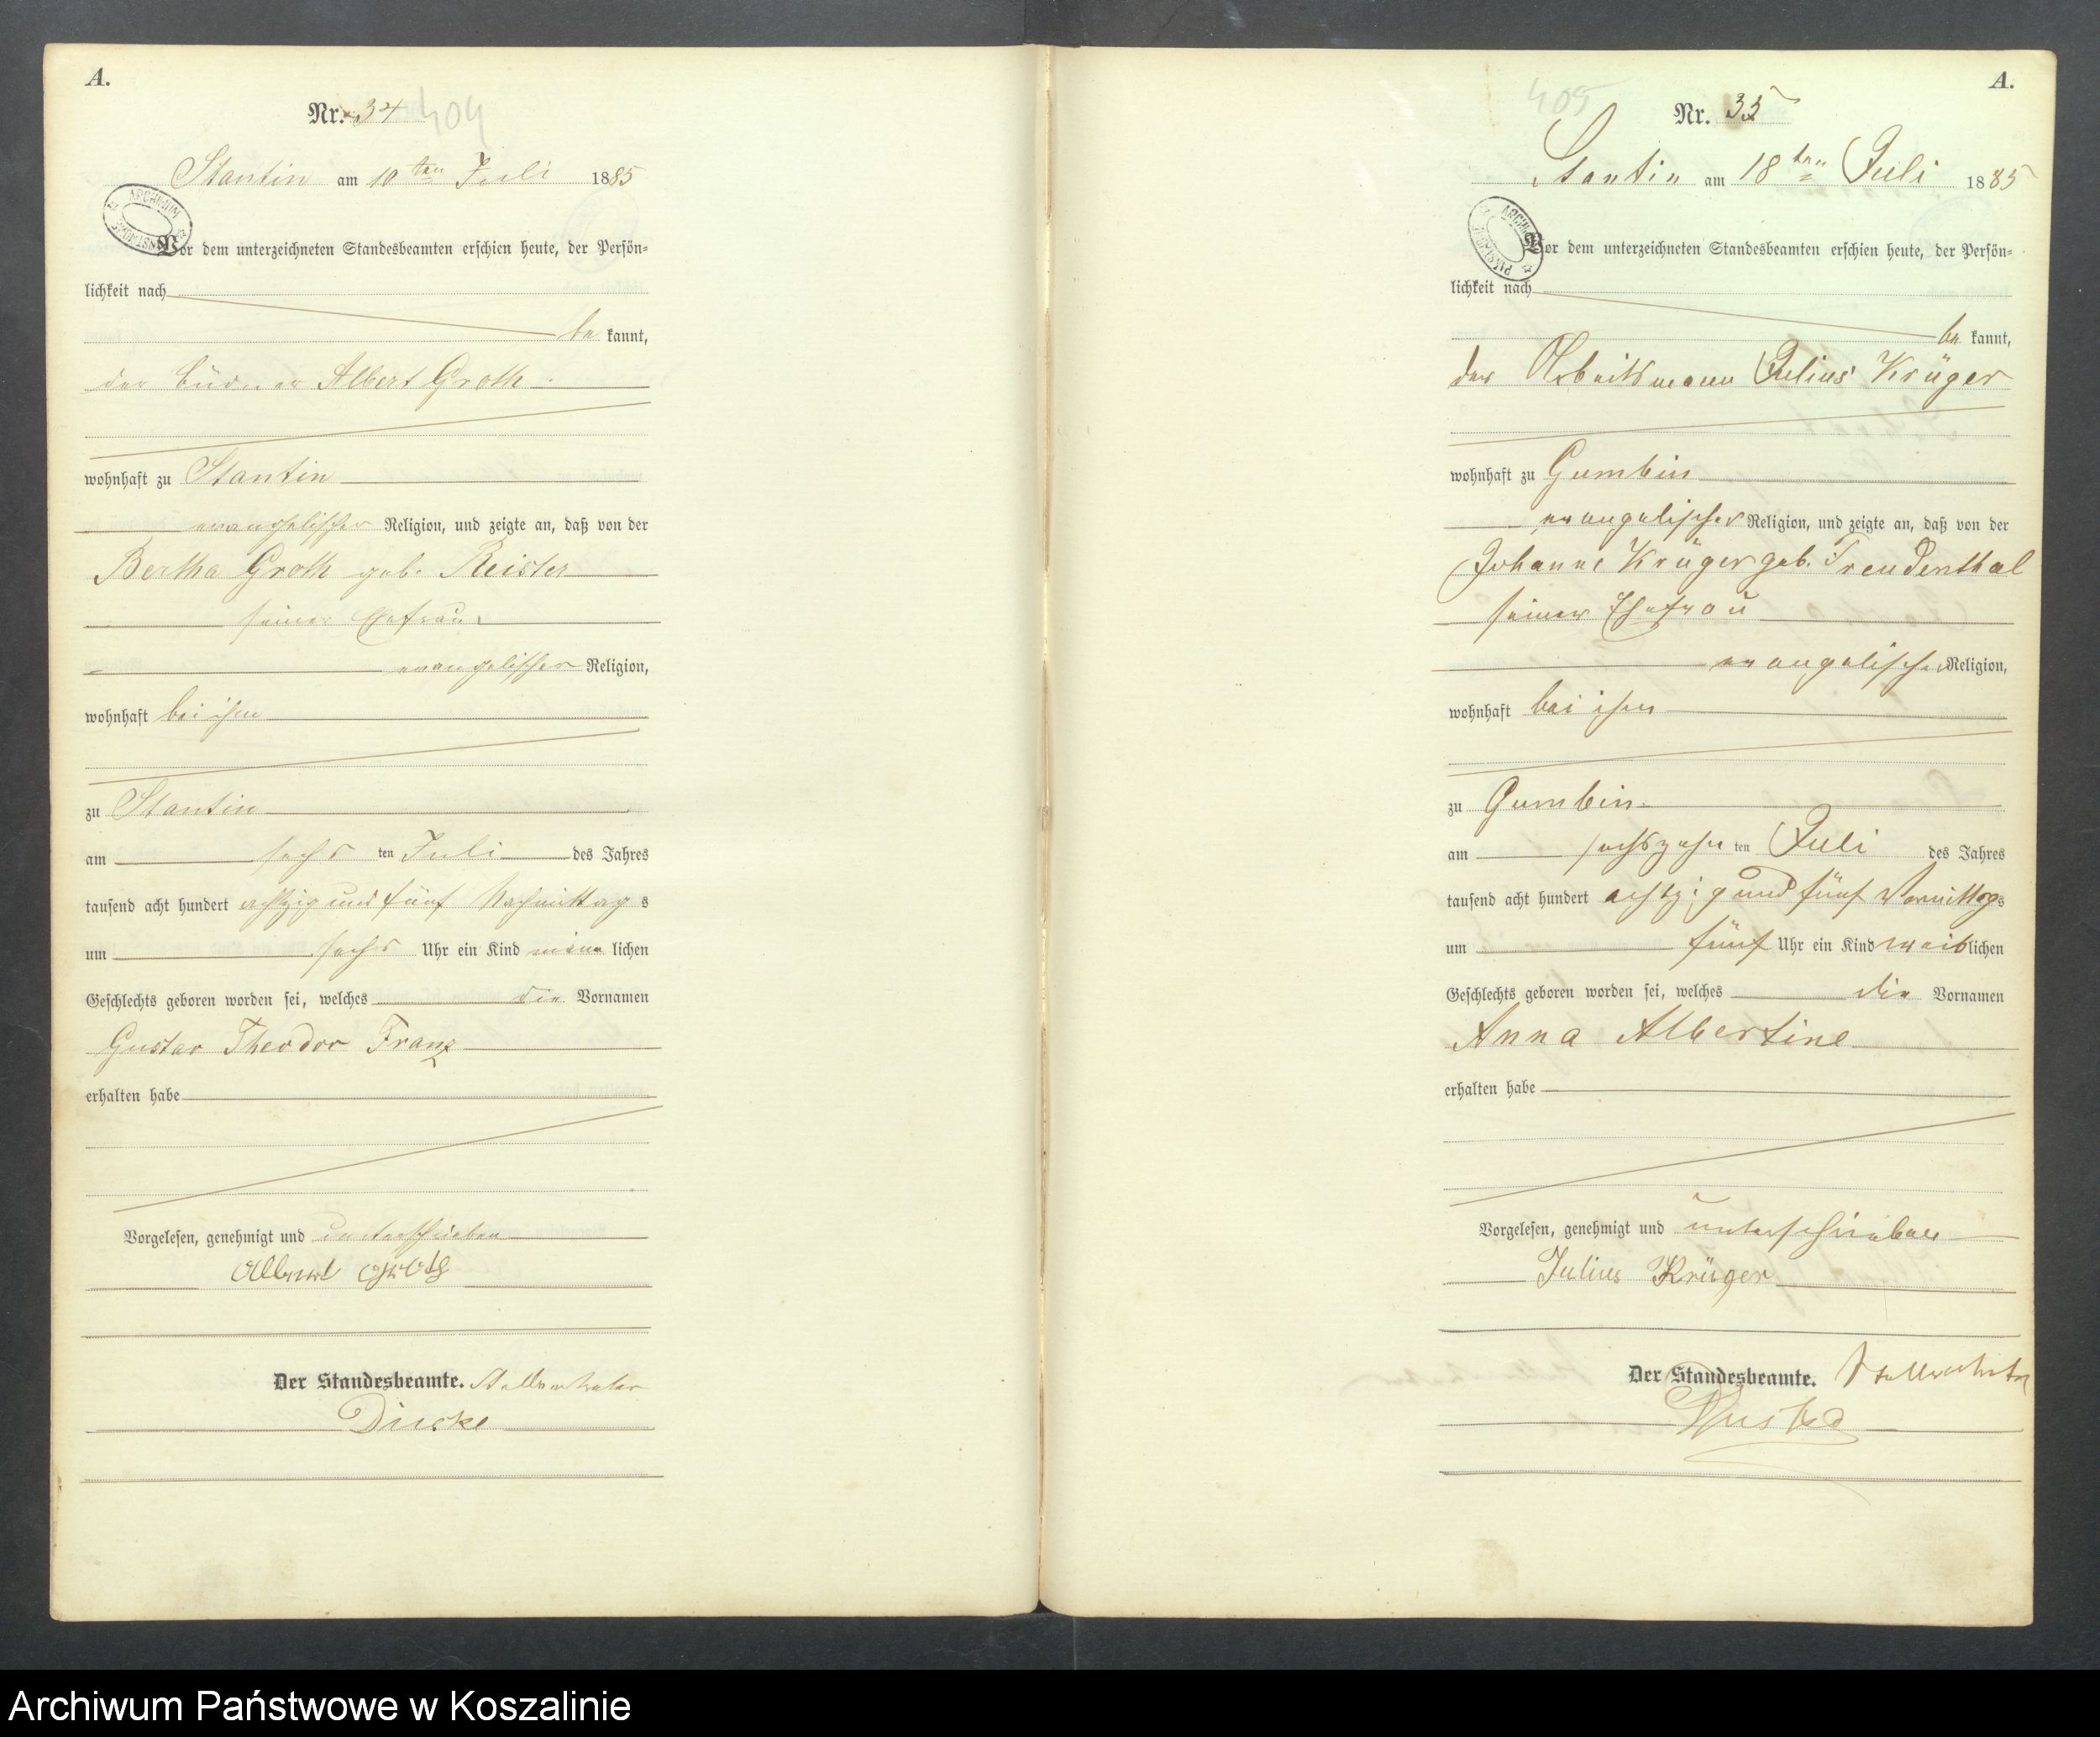 A.
Nr. 34 404
Stantin am 10 ten Juli 1885
ARCHIWUM PAŃSTWOWE
Vor dem unterzeichneten Standesbeamten erschien heute, der Persön-
lichkeit nach
be kannt,
der Büdner Albert Groth
wohnhaft zu Stantin
evangelischer Religion, und zeigte an, daß von der
Bertha Groth geb. Reister
seiner Ehefrau
evangelischer Religion,
wohnhaft bei ihm
zu Stantin
am sechs ten Juli des Jahres
tausend acht hundert achtzig und fünf Nachmittag s
um sechs Uhr ein Kind männ lichen
Geschlechts geboren worden sei, welches die Vornamen
Gustav Theodor Franz
erhalten habe
Vorgelesen, genehmigt und unterschrieben
Albert Groth
Der Standesbeamte. Stellvertreter
A.
405 Nr. 35
Stantin am 18 ten Juli 1885
ARCHIWUM PAŃSTWOWE
Vor dem unterzeichneten Standesbeamten erschien heute, der Persön-
lichkeit nach
be kannt,
der Arbeitsmann Julius Krüger
wohnhaft zu Gumbin
evangelischer Religion, und zeigte an, daß von der
Johanne Krüger geb. Freudenthal
seiner Ehefrau
evangelischer Religion,
wohnhaft bei ihm
zu Gumbin.
am sechszehn ten Juli des Jahres
tausend acht hundert achtzig und fünf Vormittags
um fünf Uhr ein Kind weiblichen
Geschlechts geboren worden sei, welches die Vornamen
Anna Albertine
erhalten habe
Vorgelesen, genehmigt und unterschrieben
Julius Krüger
Der Standesbeamte. Stellvertreter
Archiwum Państwowe w Koszalinie